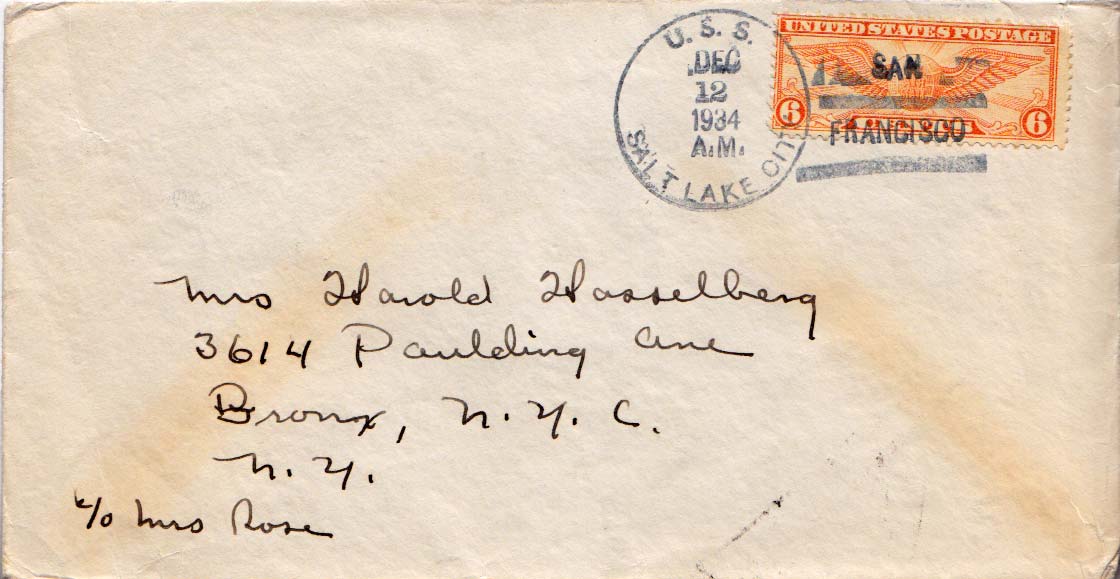 U. S. S.
DEC
12
1934
A.M.
SALT LAKE CITY
UNITED STATES POSTAGE
SAN
FRANCISCO
6 6
Mrs Harold Hasselberg
3614 Paulding Ave
Bronx, N.Y.C.
N.Y.
c/o Mrs Rose